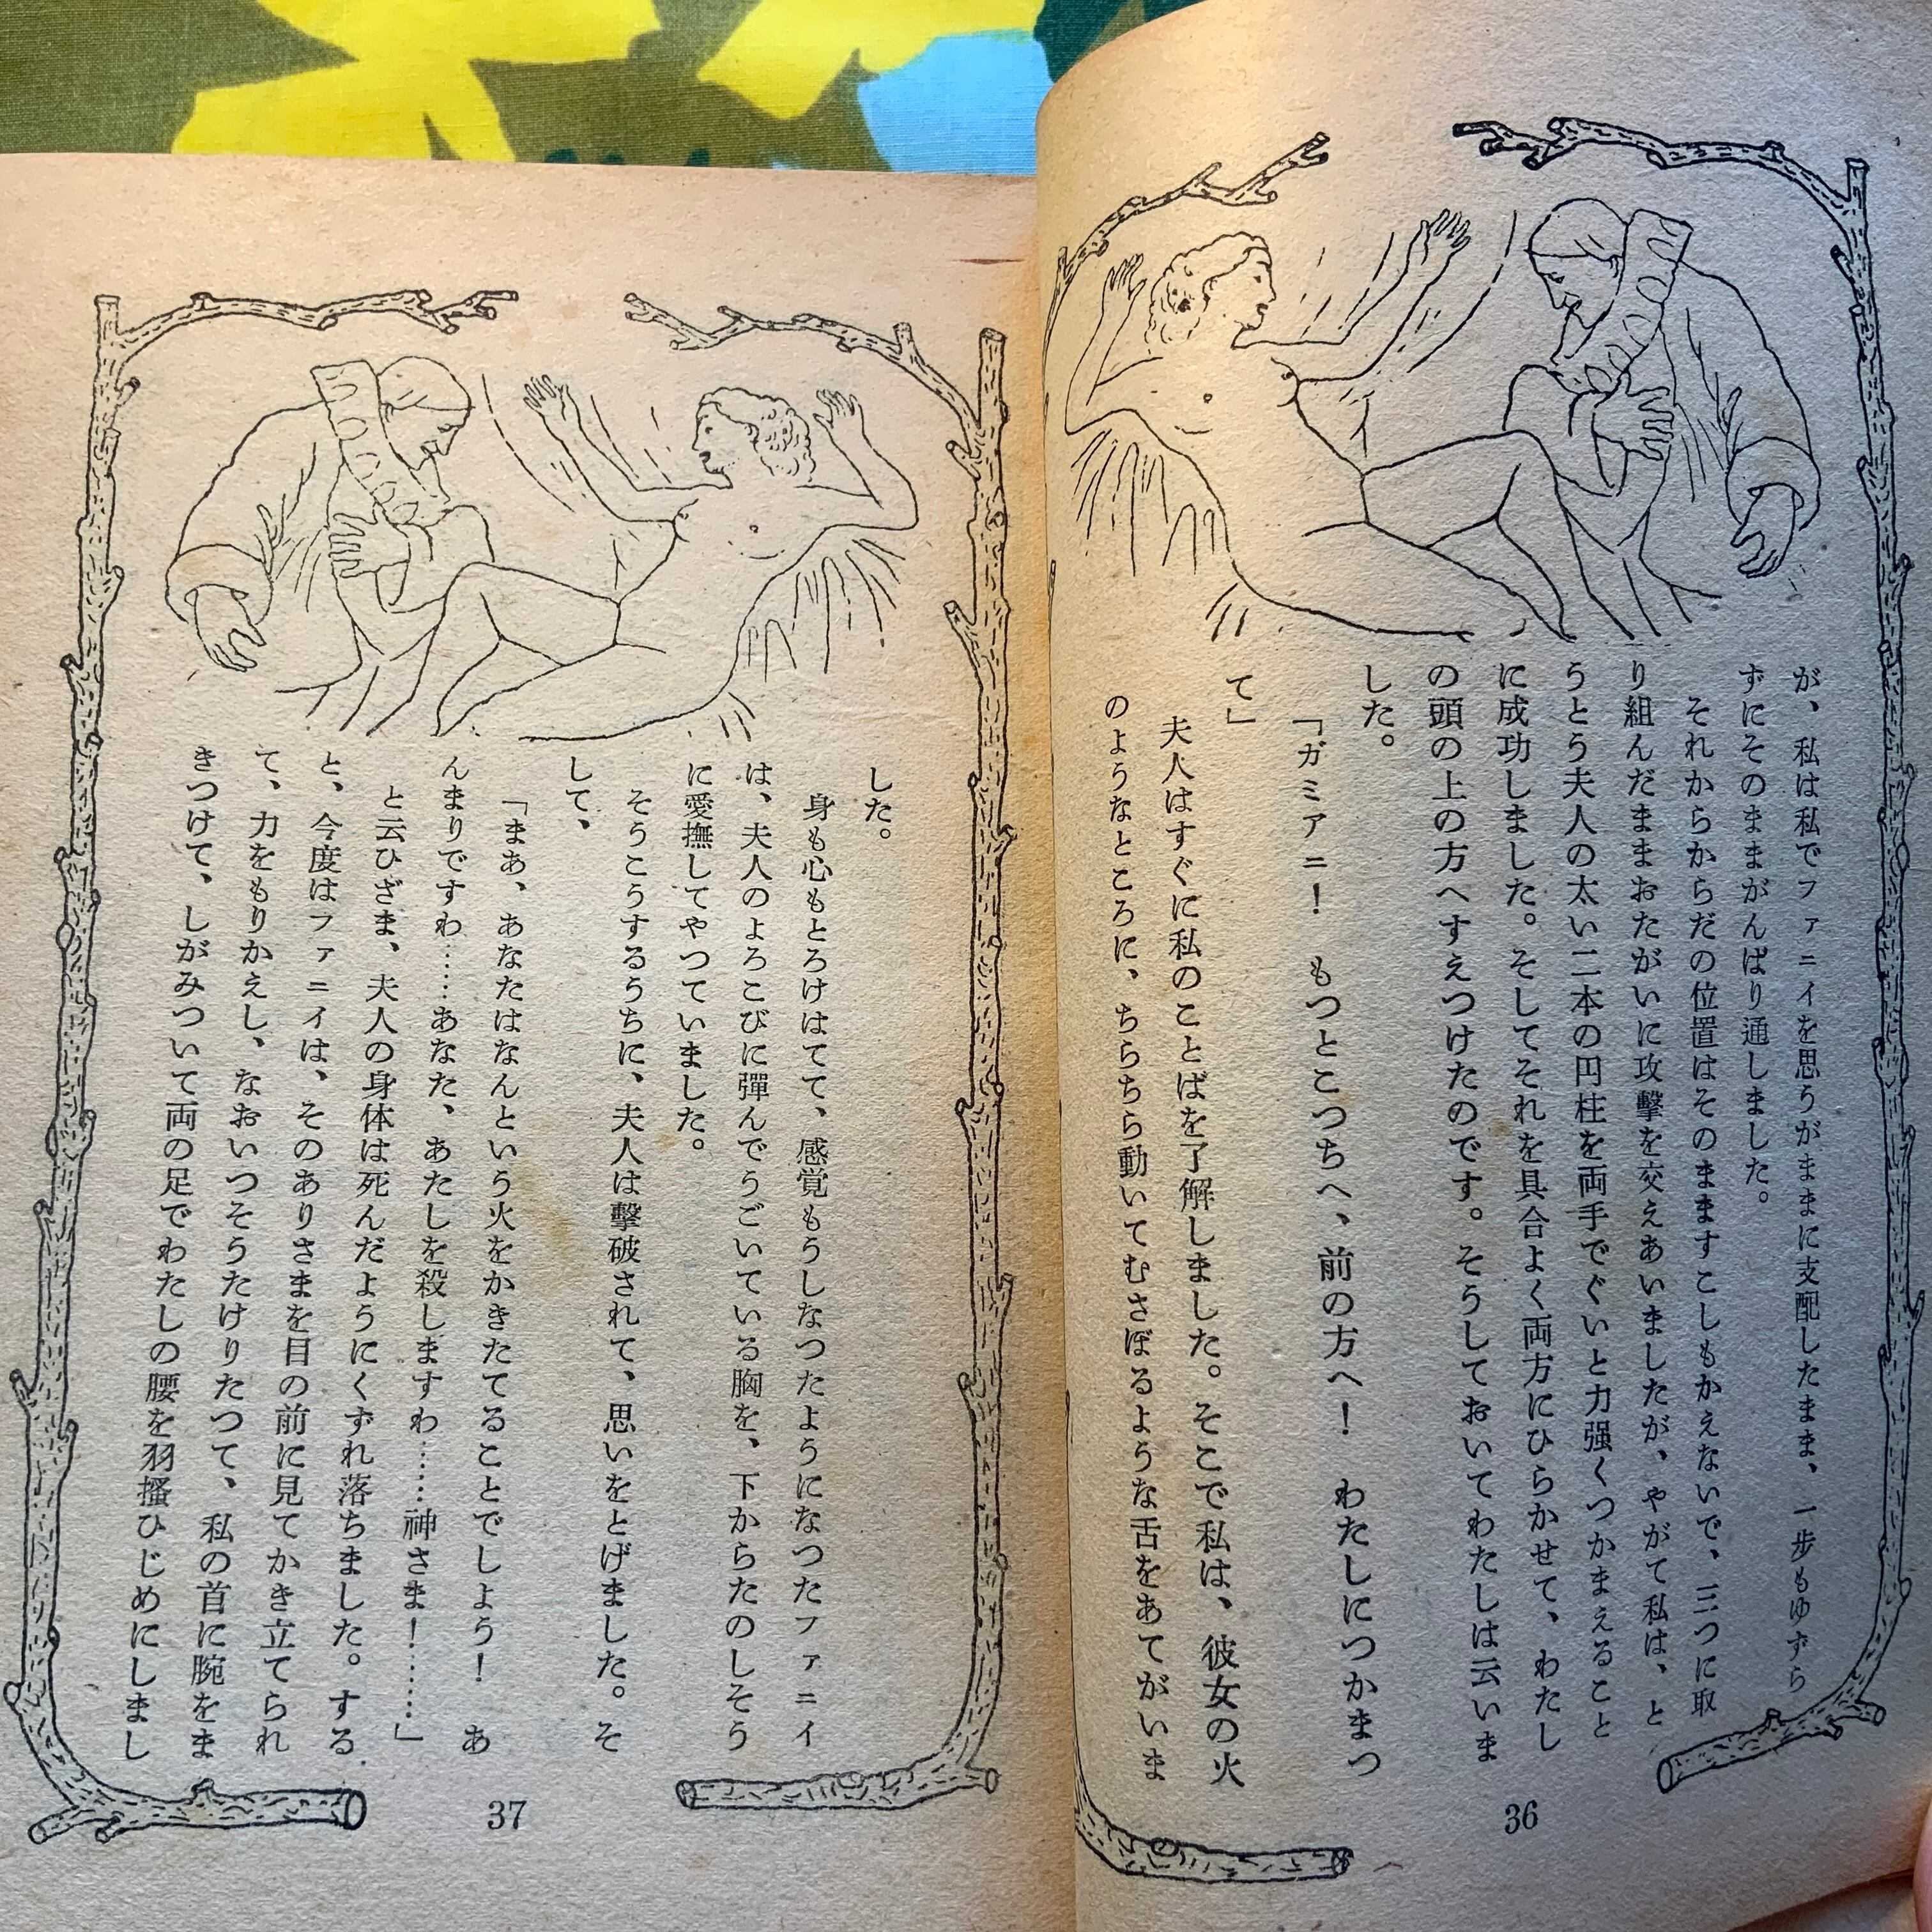 が、私は私でファニイを思うがままに支配したまま、一歩もゆずら
ずにそのままがんばり通しました。
それからからだの位置はそのまますこしもかえないで、三つに取
り組んだままおたがいに攻撃を交えあいましたが、やがて私は、と
うとう夫人の太い二本の円柱を両手でぐいと力強くつかまえること
に成功しました。そしてそれを具合よく両方にひらかせて、わたし
の頭の上の方へすえつけたのです。そうしておいてわたしは云いま
した。
「ガミアニ！　もつとこつちへ、前の方へ！　わたしにつかまつ
て」
夫人はすぐに私のことばを了解しました。そこで私は、彼女の火
のようなところに、ちらちら動いてむさぼるような舌をあてがいま
36
した。
身も心もとろけはてて、感覚もうしなつたようになつたファニイ
は、夫人のよろこびに彈んでうごいている胸を、下からたのしそう
に愛撫してやつていました。
そうこうするうちに、夫人は擊破されて、思いをとげました。そ
して、
「まあ、あなたはなんという火をかきたてることでしよう！　あ
んまりですわ……あなた、あたしを殺しますわ……神さま！……」
と云ひざま、夫人の身体は死んだようにくずれ落ちました。する
と、今度はファニイは、そのありさまを目の前に見てかき立てられ
て、力をもりかえし、なおいつそうたけりたつて、私の首に腕をま
きつけて、しがみついて両の足でわたしの腰を羽搔ひじめにしまし
37